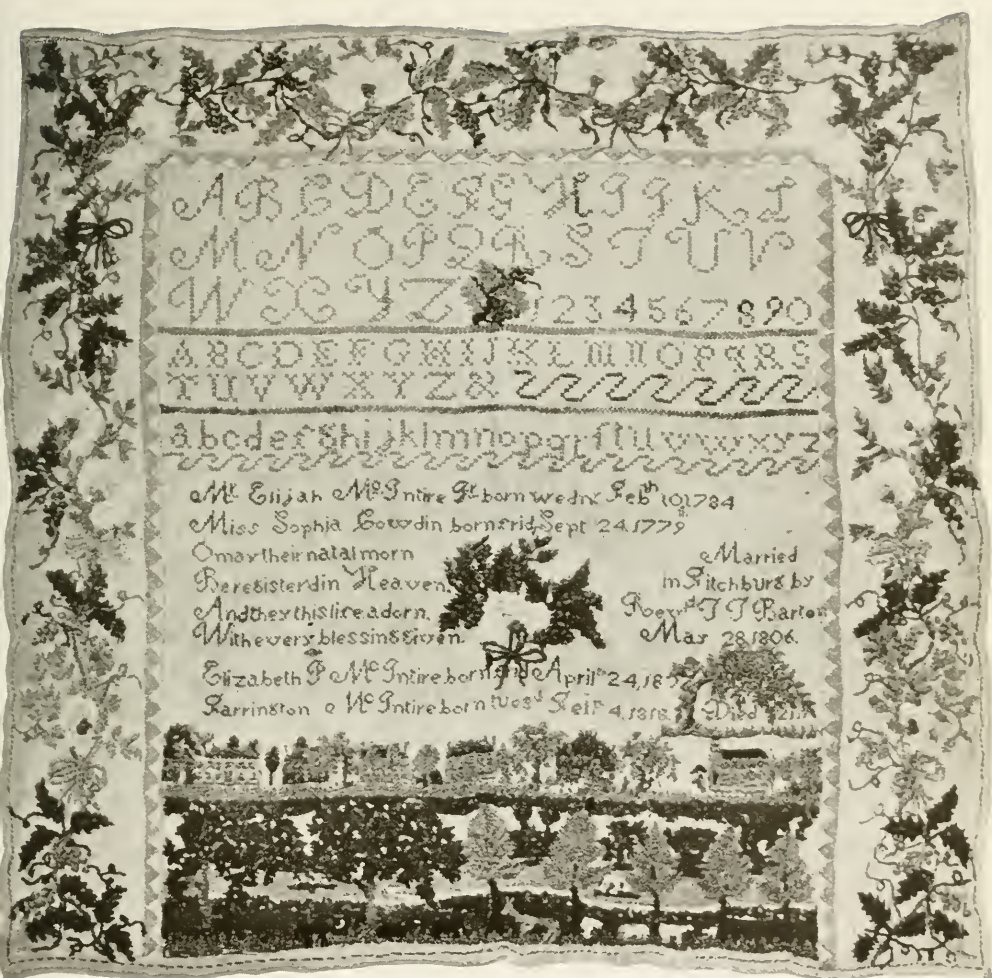 A B C D E F G H I J K L
M N O P Q R S T U V
W X Y Z 1234567890
ABCDEFGHIJKLMNOPQRS
TUVWXYZ&
abcdefghijklmnopqrſtuvwxyz
Mr. Elijah McIntire born wedn. Feb 101784
Miss Sophia Cowdin born frid, Sept 24,1779
O may their natal morn
Be registerd in Heaven,
And they this life adorn,
With every blessing given.
Married
in Fitchburg by
Revd T T Barton
May 28,1806.
Elizabeth P McIntire born April 24,
Farrington McIntire born tuesd 4,1818. Died